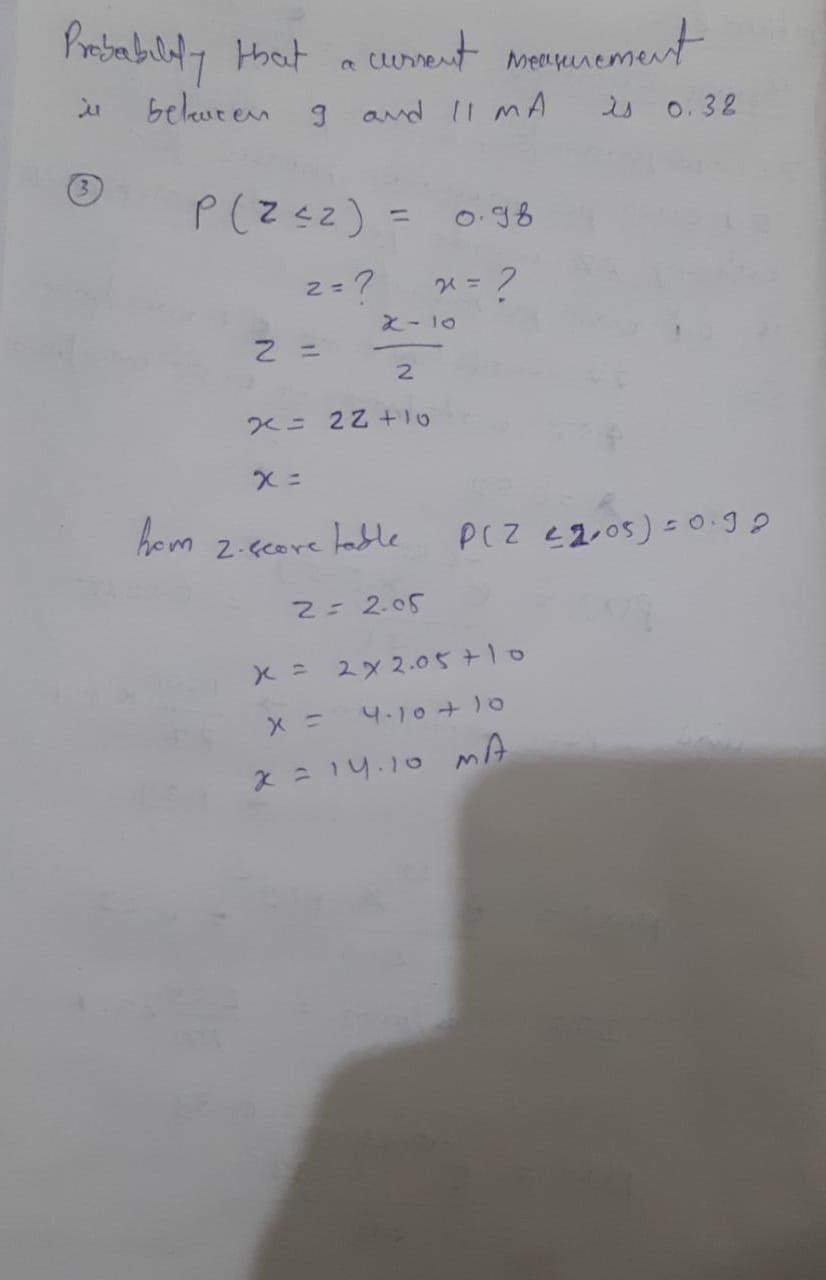 Probability that a current measurement
is between 9 and 11 mA is 0.38
③
P(Z ≤ z) = 0.98
z = ? x = ?
z = x - 10 / 2
x = 2z + 10
x =
from z-score table P(Z ≤ 2.05) = 0.98
z = 2.05
x = 2 x 2.05 + 10
x = 4.10 + 10
x = 14.10 mA